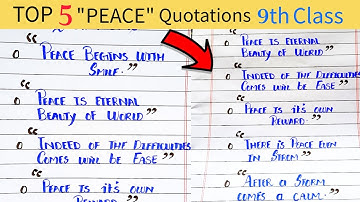 TOP 5 "PEACE" Quotations 9th Class
“
o Peace Begins with
Smile.”
“
o Peace is Eternal
Beauty of World”
“
o Indeed of the Difficulties
Comes will be Ease”
“
o Peace Is it's own
Reward.”
o Peace is Eternal
Beauty of World”
“
o Indeed of the Difficulties
Comes will be Ease”
“
o Peace Is it's own
Reward”
“
o There is Peace Even
In Strom”
“
o After a Storm
comes a calm.”